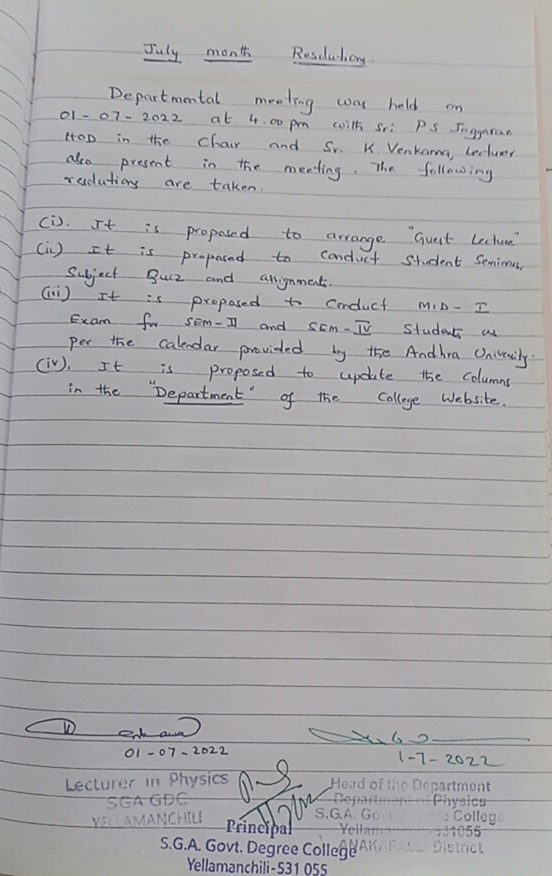 July month Resolution.
Departmental meeting was held on
01-07-2022 at 4.00 pm with Sri P.S Jaggarao
HOD in the Chair and Sr. K. Venkanna, Lecturer
also present in the meeting. The following
resolutions are taken.
(i). It is proposed to arrange "Guest Lecture"
(ii) It is proposed to Conduct Student Seminars,
Subject Quiz and assignment.
(iii) It is proposed to Conduct MID-I
Exam for SEM-II and SEM-IV Students as
per the calendar provided by the Andhra University.
(iv). It is proposed to update the Columns
in the "Department" of the College Website.
01-07-2022
1-7-2022
Lecturer in Physics
SGA GDC
YELLAMANCHILI
Head of the Department
Department of Physics
S.G.A. Gov College
Yellam 531055
District
Principal
S.G.A. Govt. Degree College
Yellamanchili-531 055